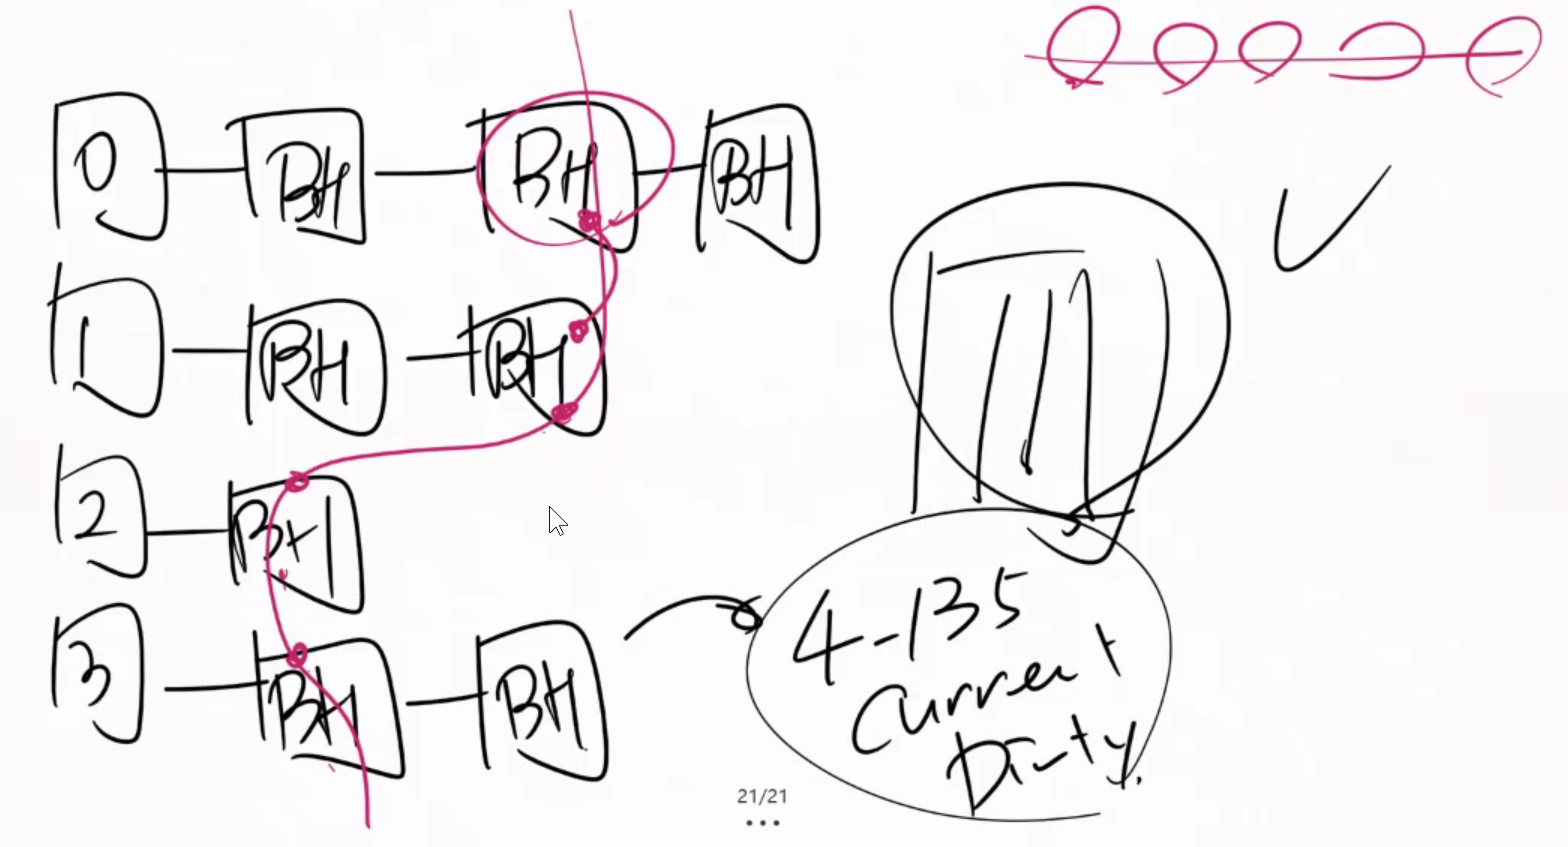 0 BH BH BH
1 BH BH
2 BH
3 BH BH
4-135
Current
Dirty.
21/21